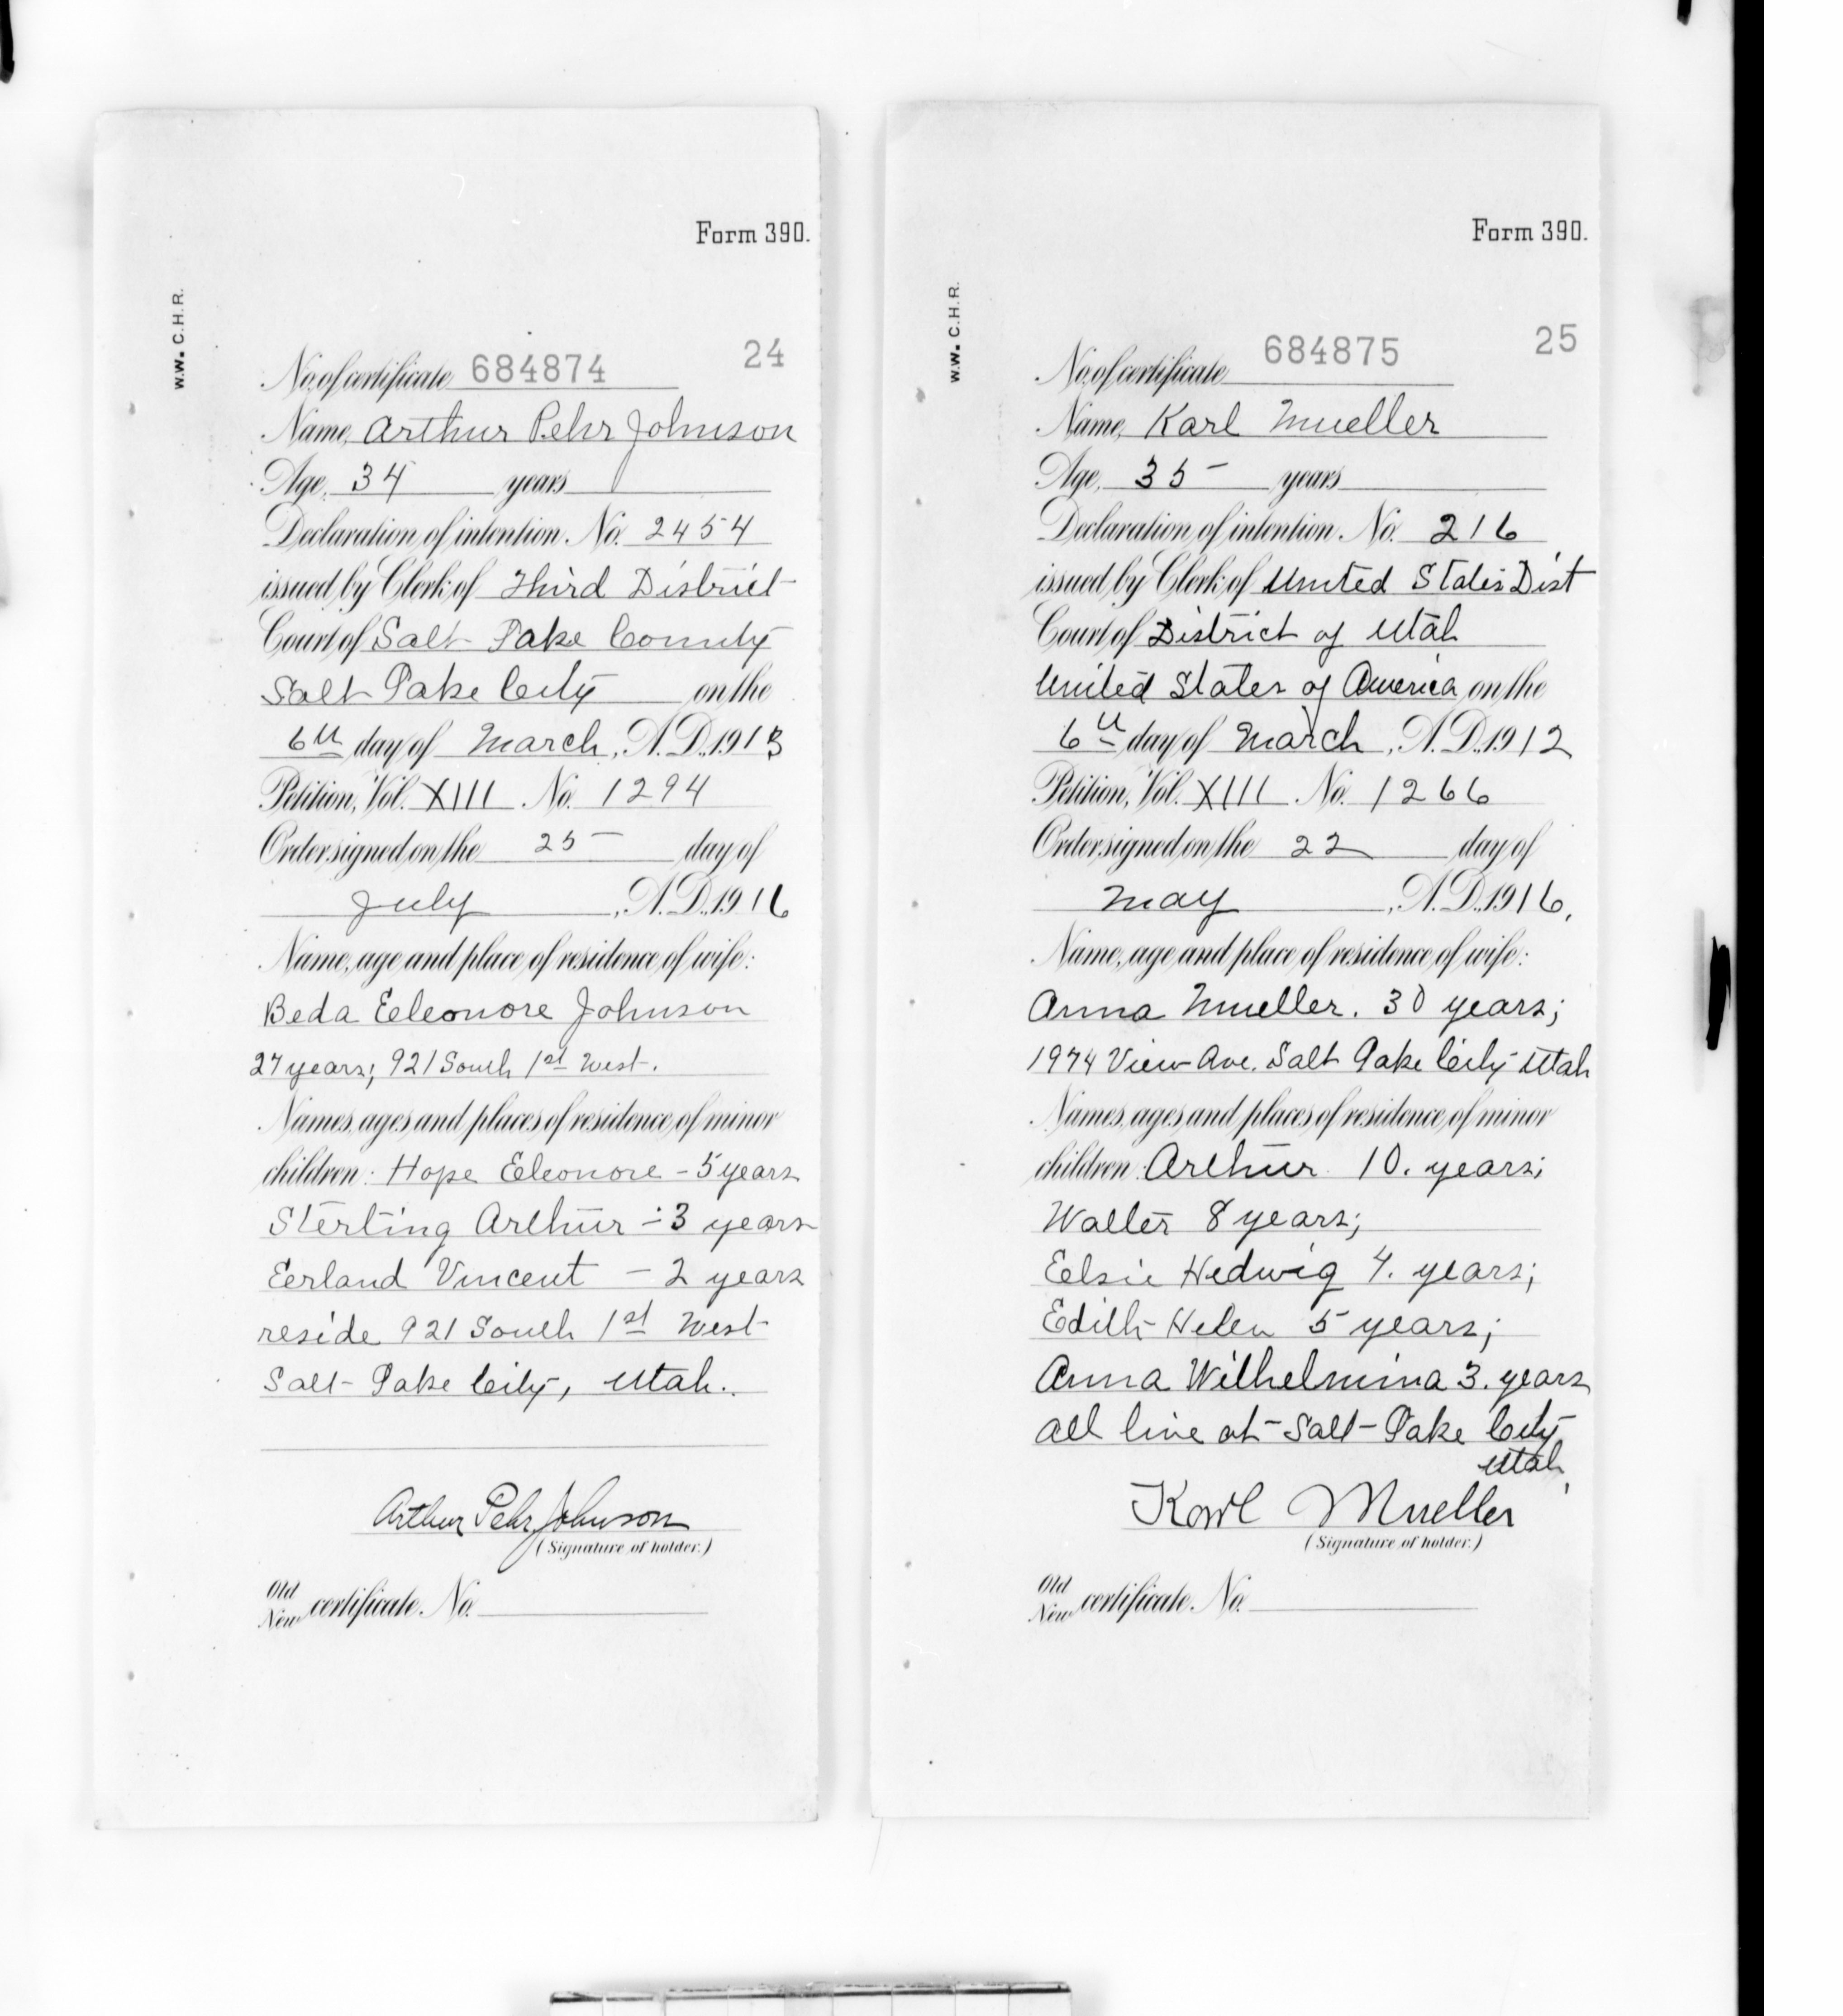 Form 390.
W.W. C.H.R.
No. of certificate 684874 24
Name, Arthur Pehr Johnson
Age, 34 years
Declaration of intention, No. 2454
issued by Clerk of Third District
Court of Salt Lake County
Salt Lake City on the
6th day of March, A.D. 1913
Petition, Vol. XIII No. 1294
Order signed on the 25 day of
July, A.D. 1916
Name, age and place of residence of wife:
Beda Eeleonore Johnson
27 years; 921 South 1st West.
Names, ages and places of residence of minor
children: Hope Eleonore - 5 years
Sterling Arthur - 3 years
Eerland Vincent - 2 years
reside 921 South 1st West
Salt Lake City, Utah.
Arthur Pehr Johnson
(Signature of holder.)
Old
New certificate. No.
Form 390.
W.W. C.H.R.
No. of certificate 684875 25
Name, Karl Mueller
Age, 35 years
Declaration of intention, No. 216
issued by Clerk of United States Dist
Court of District of Utah
United States of America on the
6th day of March, A.D. 1912
Petition, Vol. XIII No. 1266
Order signed on the 22 day of
May, A.D. 1916,
Name, age and place of residence of wife:
Anna Mueller. 30 years;
1974 View Ave. Salt Lake City Utah
Names, ages and places of residence of minor
children: Arthur 10. years;
Walter 8 years;
Eelsie Hedwig 7. years;
Edith Helen 5 years;
Anna Wilhelmina 3. years
all live at Salt Lake City
Utah,
Karl Mueller
(Signature of holder.)
Old
New certificate. No.